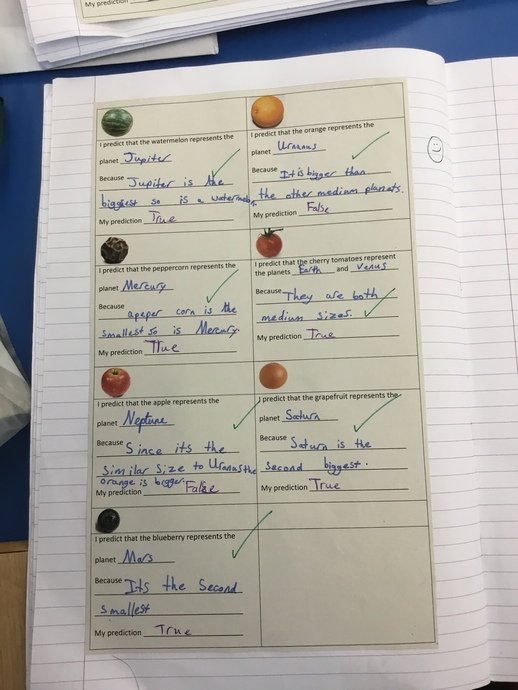 My prediction
I predict that the watermelon represents the
planet Jupiter
Because Jupiter is the
biggest so is a watermelon.
My prediction True
I predict that the orange represents the
planet Uranus
Because It is bigger than
the other medium planets.
My prediction False
I predict that the peppercorn represents the
planet Mercury
Because apeper corn is the
smallest so is Mercury.
My prediction True
I predict that the cherry tomatoes represent
the planets Earth and Venus
Because They are both
medium sizes.
My prediction True
I predict that the apple represents the
planet Neptune
Because Since its the
Similar Size to Uranus the
orange is bigger.
My prediction False
I predict that the grapefruit represents the
planet Saturn
Because Saturn is the
second biggest.
My prediction True
I predict that the blueberry represents the
planet Mars
Because Its the Second
smallest
My prediction True